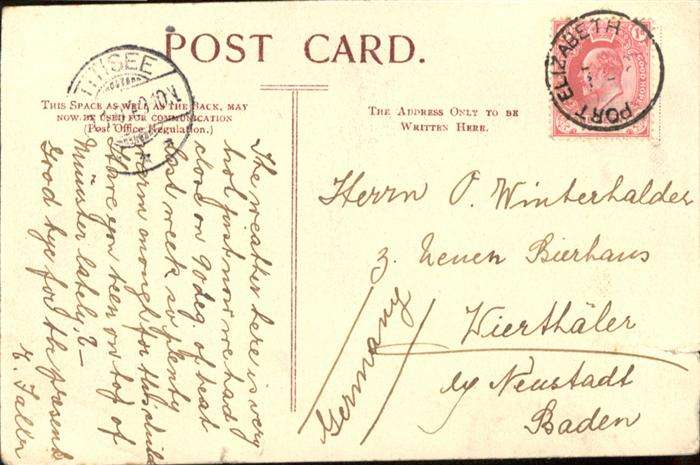 POST CARD.
THIS SPACE AS WELL AS THE BACK, MAY
NOW BE USED FOR COMMUNICATION
(Post Office Regulation.)
THE ADDRESS ONLY TO BE
WRITTEN HERE.
TITISEE
PORT ELIZABETH
The weather here is very
hot just now we had
close on 90 deg. of heat
last week so plenty
warm enough for this child
Have you been on top of
Münster lately? –
Good bye for the present
E. Faller
Herrn O. Winterhalder
z. Neuen Bierhaus
Vierthäler
by Neustadt
Baden
Germany